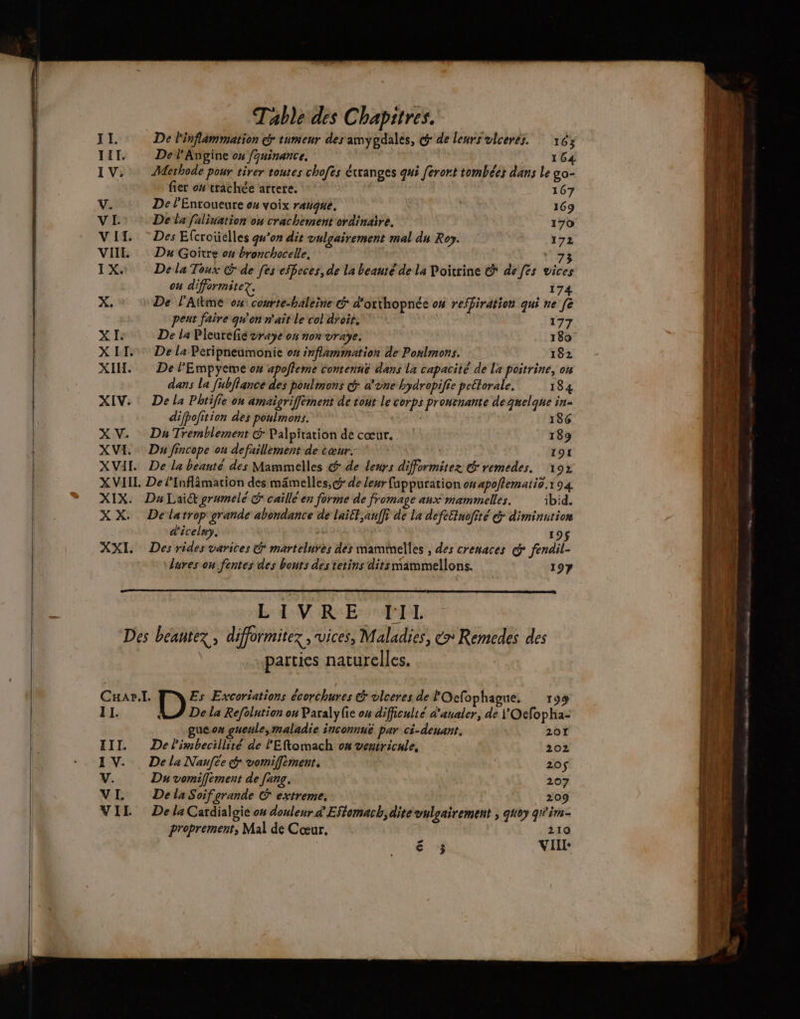 Table des Chapitres.
II. De l'inflammation & tumeur des amygdales, & de leurs vlceres. 163
III. De l'Angine ou squinance, 164
IV. Methode pour tirer toutes choses étranges qui seront tombées dans le go-
sier ou trachée artere. 167
V. De l'Enroueure ou voix rauque, 169
VI. De la saliuation ou crachement ordinaire, 170
VII. Des Escroüelles qu'on dit vulgairement mal du Roy. 172
VIII. Du Goitre ou bronchocelle, 173
IX. De la Toux & de ses especes, de la beauté de la Poitrine & de ses vices
ou difformitez, 174
X. De l'Astme ou courte-haleine & d'orthopnée ou respiration qui ne se
peut faire qu'on n'ait le col droit, 177
XI. De la Pleuresie vraye ou non vraye. 180
XII. De la Peripneumonie ou inflammation de Poulmons. 182
XIII. De l'Empyeme ou aposteme contenuë dans la capacité de la poitrine, ou
dans la substance des poulmons & d'vne hydropisie pectorale. 184
XIV. De la Phtisie ou amaigrissement de tout le corps prouenante de quelque in-
disposition des poulmons. 186
XV. Du Tremblement & Palpitation de cœur, 189
XVI. Du sincope ou defaillement de cœur. 191
XVII. De la beauté des Mammelles & de leurs difformitez & remedes. 192
XVIII. De l'Inflâmation des mámelles, & de leur suppuration ou apostematiõ. 194
XIX. Du Laict grumelé & caillé en forme de fromage aux mammelles. ibid.
XX. De la trop grande abondance de laict, aussi de la defectuosité & diminution
d'iceluy. 195
XXI. Des rides varices & martelures des mammelles, des creuaces & fendil-
lures ou fentes des bouts des tetins dits mammellons. 197
LIVRE III.
Des beautez, difformitez, vices, Maladies, & Remedes des
parties naturelles.
CHAP.I. DEs Excoriations écorchures & vlceres de l'Oesophague, 199
II. De la Resolution ou Paralysie ou difficulté d'aualer, de l'Oesopha-
gue ou gueule, maladie inconnuë par ci-deuant, 201
III. De l'imbecillité de l'Estomach ou ventricule, 202
IV. De la Nausée & vomissement. 205
V. Du vomissement de sang. 207
VI. De la Soif grande & extreme, 209
VII. De la Cardialgie ou douleur d'Estomach, dite vulgairement, quoy qu'im-
proprement, Mal de Cœur, 210
é 3 VIII.